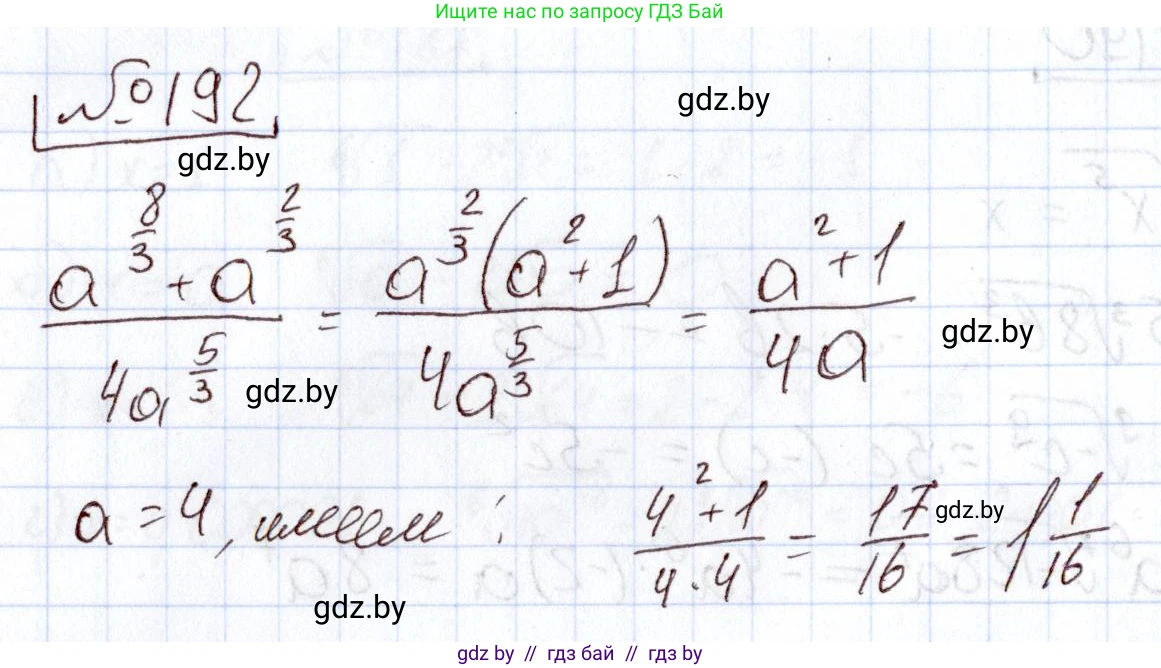 Ищите нас по запросу ГДЗ Бай
№192
gdz.by
gdz.by
(a^(8/3) + a^(2/3)) / (4a^(5/3)) = (a^(2/3)(a² + 1)) / (4a^(5/3)) = (a² + 1) / (4a)
gdz.by
gdz.by
a = 4, имеем: (4² + 1) / (4 · 4) = 17/16 = 1 1/16
gdz.by
gdz.by
gdz.by // гдз бай // гдз by